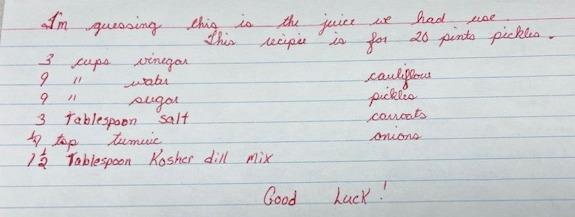 I'm guessing this is the juice we had use.
This recipie is for 20 pints pickles.
3 cups vinegar
9 " water cauliflour
9 " sugar pickles
3 Tablespoon salt carrots
tsp tumeric onions
1 1/2 Tablespoon Kosher dill mix
Good Luck!